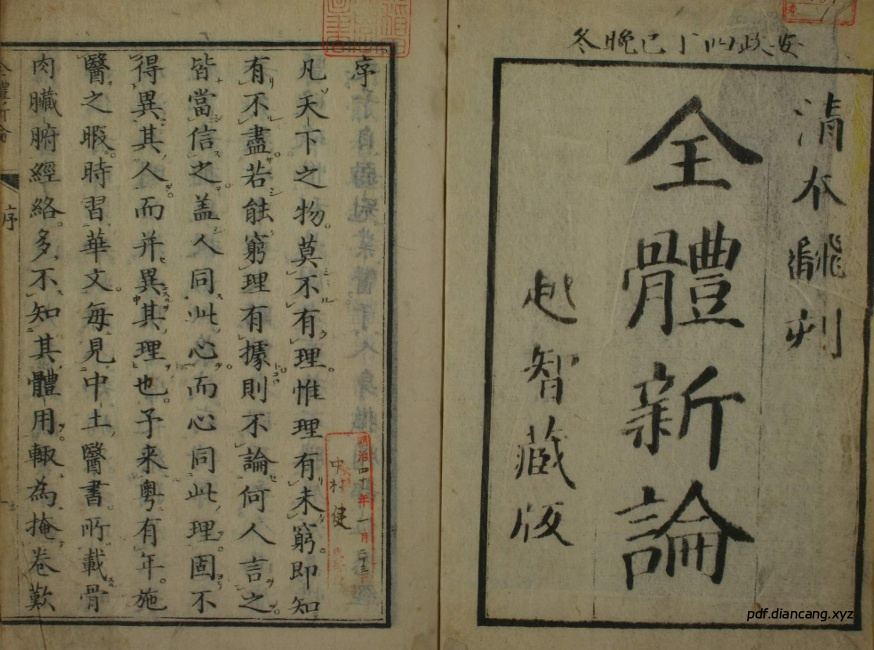 安政四丁巳晚冬
清本翻刻
全體新論
越智藏版
序
凡天下之物莫不有理惟理有未窮即知
有不盡若能窮理有據則不論何人言之
皆當信之盖人同此心而心同此理固不
得異其人而并異其理也予来粤有年施
醫之暇時習華文每見中土醫書所載骨
肉臟腑經絡多不知其體用輙為掩卷歎
全體新論 序 一
明治四十年一月
中村
pdf.diancang.xyz